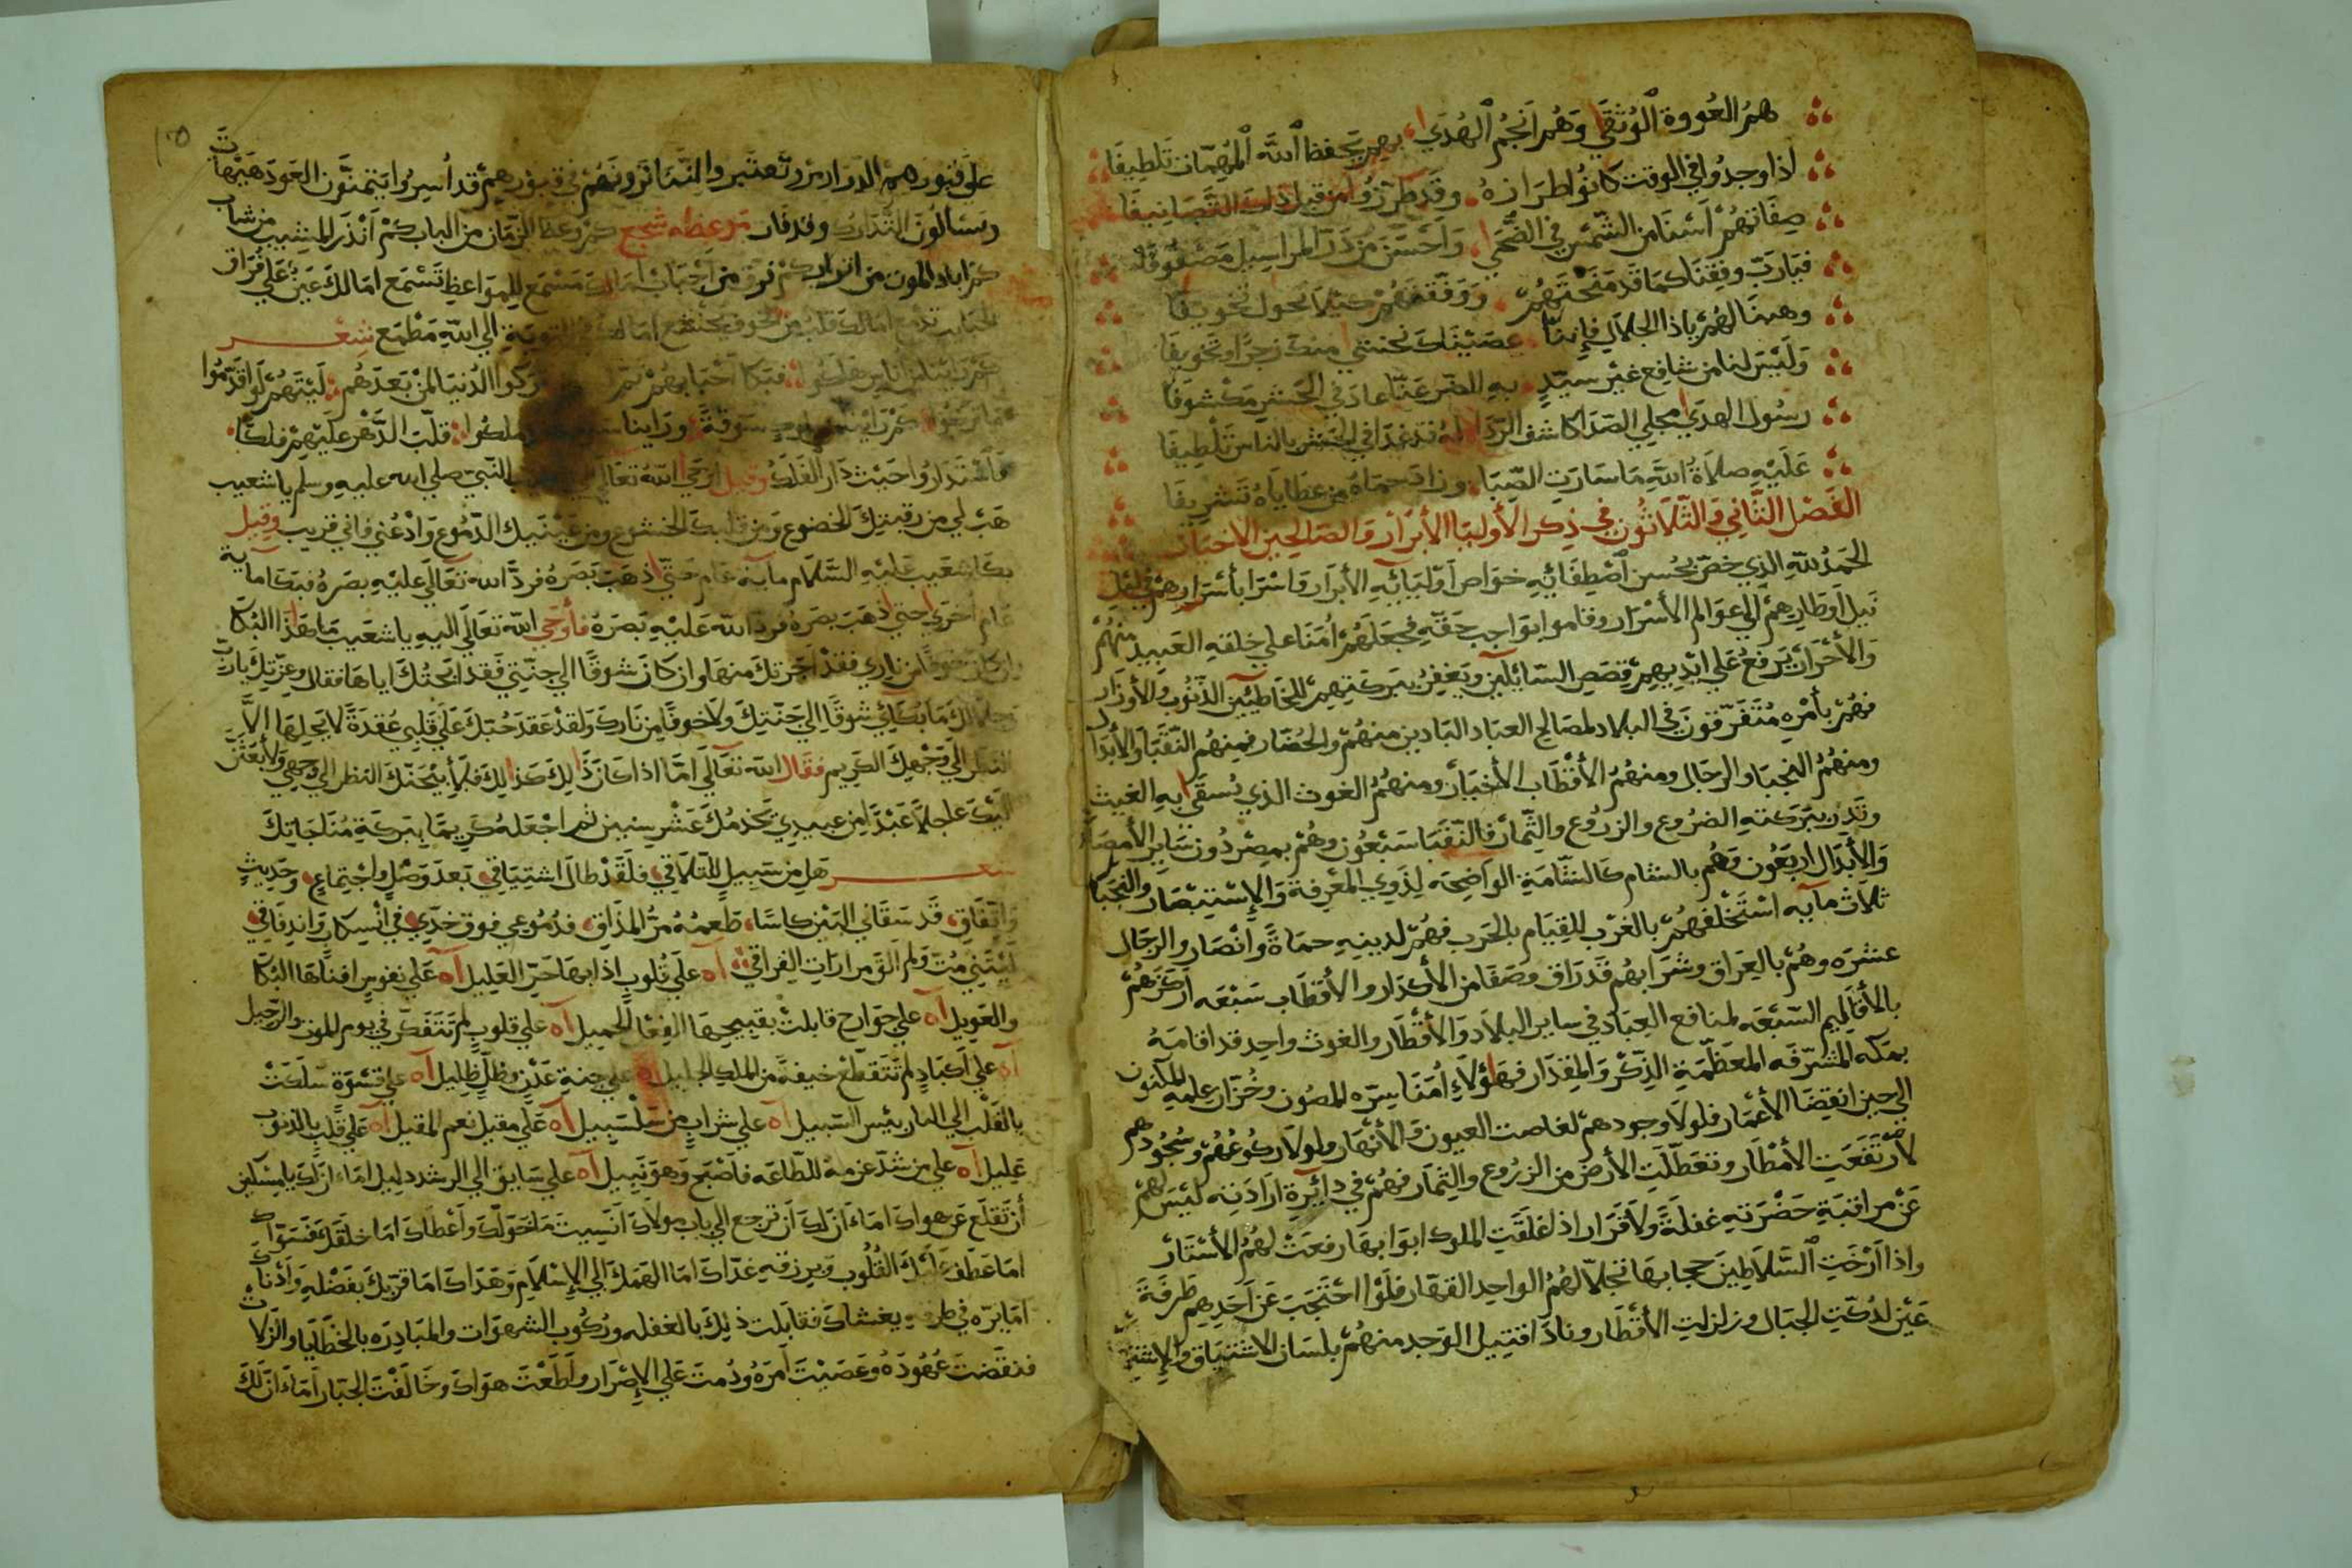 هم العروة الوثقي وهم انجم الهدي بهم يحفظ الله المهمات تلطيفا
اذا وجدوا في الوقت كانوا طرازه وقد طرزوا من قبل ذاك التصانيفا
صفاتهم اسنا من الشمس في الضحى واحسن من در المراسيل مصفوفا
فيارب وفقنا كما قد منحتهم ووفقتهم كيلا نحول تخويفا
وهبنا لهم ياذا الجلال فإننا عصيناك نختشي منك زجرا وتخويفا
وليس لنا من شافع غير سيد به الضر عنا عاد في الحشر مكشوفا
رسول الهدى مجلي الصدا كاشف الردا له قد غدا في الحشر بالناس تلطيفا
عليه صلاة الله ما سارت الصبا وزاد حماه من عطاياه تشريفا
الفصل الثاني والثلاثون في ذكر الأوليا الأبرار والصالحين الاخيار
الحمد لله الذي خص بحسن اصطفائيه خواص اوليائيه الأبرار واسرا بأسرارهم في ليل
نيل اوطارهم الي عوالم الأسرار وقاموا بواجب حقه فجعلهم أمنا علي خلقه العبيد منهم
والأحرار يرفع علي ايديهم قصص السائلين ويغفر ببركتهم للخاطئين الذنوب والأوزار
فهم بأمره متفرقون في البلاد لمصالح العباد البادين منهم والحضار فمنهم النقبا والأبدال
ومنهم النجبا والرجال ومنهم الأقطاب الأخيار ومنهم الغوث الذي يسقى به الغيث
وتدر ببركته الضروع والزروع والثمار فالنقبا سبعون وهم بمصر دون ساير الأمصار
والأبدال اربعون وهم بالشام كالشامة الواضحه لذوي المعرفة والإستبصار والنجبا
ثلاث مآيه استخلفهم بالغرب للقيام بالحرب فهم لدينه حماة وانصار والرجال
عشره وهم بالعراق وشرابهم قد راق وصفا من الأكدار والأقطاب سبعه اركزهم
بالأقاليم السبعه لمنافع العباد في ساير البلاد والأقطار والغوث واحد قد اقامه
بمكه المشرفه المعظمة الذكر والمقدار فهاؤلاء أمنا سره المصون وخزان علمه المكنون
الي حين انقضا الأعمار فلولا وجودهم لغاصت العيون والأنهار ولولا ركوعهم وسجودهم
لارتفعت الأمطار وتعطلت الأرض من الزروع والثمار فهم في دآيرة ارادته ليس لهم
عن مراقبة حضرته غفلة ولا قرار اذا غلقت الملوك ابوابها رفعت لهم الأستار
واذا ارخت السلاطين حجابها تجلا لهم الواحد القهار فلوا احتجب عن احدهم طرفة
عين لدكت الجبال وزلزلت الأقطار وناذا قتيل الوجد منهم بلسان الاشتياق
علي قبورهم الدوارس وتعتبروا النساتروتهم في قبورهم قد أسروا يتمنون العود هيهات
ويسالون التدارك وقد فات موعظه شجع كم وعظ الزمان من الباب كم انذر المشيب من شاب
كم اباد الموت من اترابكم فرق من احباب امالك مسمع للمواعظ تسمع امالك عين علي فراق
الاحباب تدمع امالك قلب من الخوف يخشع امالك في التوبة الي الله مطمع شعر
كم راينا من اناس هلكوا فبكا احبابهم ثم تركوا الدنيا لمن بعدهم ليتهم لو قدموا
ما تركوا كم راينا من ملوك سوقة وراينا سوقة ملكوا قلب الدهر عليهم فلكا
فاستداروا حيث دار الفلك وقيل اوحي الله تعالي النبي صلي الله عليه وسلم يا شعيب
هب لي من رقبتك الخضوع ومن قلبك الخشوع ومن عينيك الدموع وادعني فاني قريب وقيل
بكا شعيب عليه السلام مآية عام حتى ذهب بصره فرد الله تعالى عليه بصره فبكا مآية
عام اخري حتي ذهب بصره فرد الله عليه بصره فأوحي الله تعالي اليه يا شعيب ما هذا البكا
ان كان خوفا من ناري فقد اجرتك منها وان كان شوقا الي جنتي فقد ابحتك اياها فقال وعزتك يارب
وجلالك ما بكائي شوقا الي جنتك ولا خوفا من نارك ولقد عقد حبك علي قلبي عقدة لا يحلها الا
النظر الي وجهك الكريم فقال الله تعالي اما اذا كان ذالك كذالك فلأبيحنك النظر الي وجهي ولأبعثن
اليك عاجلا عبدا من عبيدي يخدمك عشر سنين ثم اجعله كريما ببركة مناجاتك
شعر هل من سبيل للتلاقي فلقد طال اشتياقي بعد وصل واجتماع وحديث
واتفاق قد سقاني البين كاسا طعمه مر المذاق فدموعي فوق خدي في انسكاب واندفاقي
ليتني مت ولم الق مرارات الفراق آه علي قلوب اذابها حر الغليل آه علي نفوس افناها البكا
والعويل آه علي جوارح قابلت بقبيحها الفعل الجميل آه علي قلوب لم تتفكر في يوم الموت والرحيل
آه علي أكباد لم تتقطع خيفة من الملك الجليل آه علي جنة عدن وظل ظليل آه علي قسوة سلكت
بالقلب الي النار بئيس السبيل آه علي شراب من سلسبيل آه علي مقيل نعم المقيل آه علي قلب بالذنوب
عليل آه علي من شد عزمه للطاعه فاصبح وهو نبيل آه علي سابق الي الرشد دليل اماء ان لك يا مسكين
أن تقلع عن هواك اماء ان لك ان ترجع الي باب مولاك انسيت ما خولك واعطاك اما خلقك فسواك
اما عطف عليك القلوب وبرزقه غذاك اما الهمك الي الإسلام وهداك اما قربك بفضله وأدناك
اما بره في طرفه يغشاك فقابلت ذلك بالغفله وركوب الشهوات والمبادره بالخطايا والزلات
فنقضت عهوده وعصيت امره ودمت علي الإصرار واطعت هواك وخالفت الجبار اماء ان لك